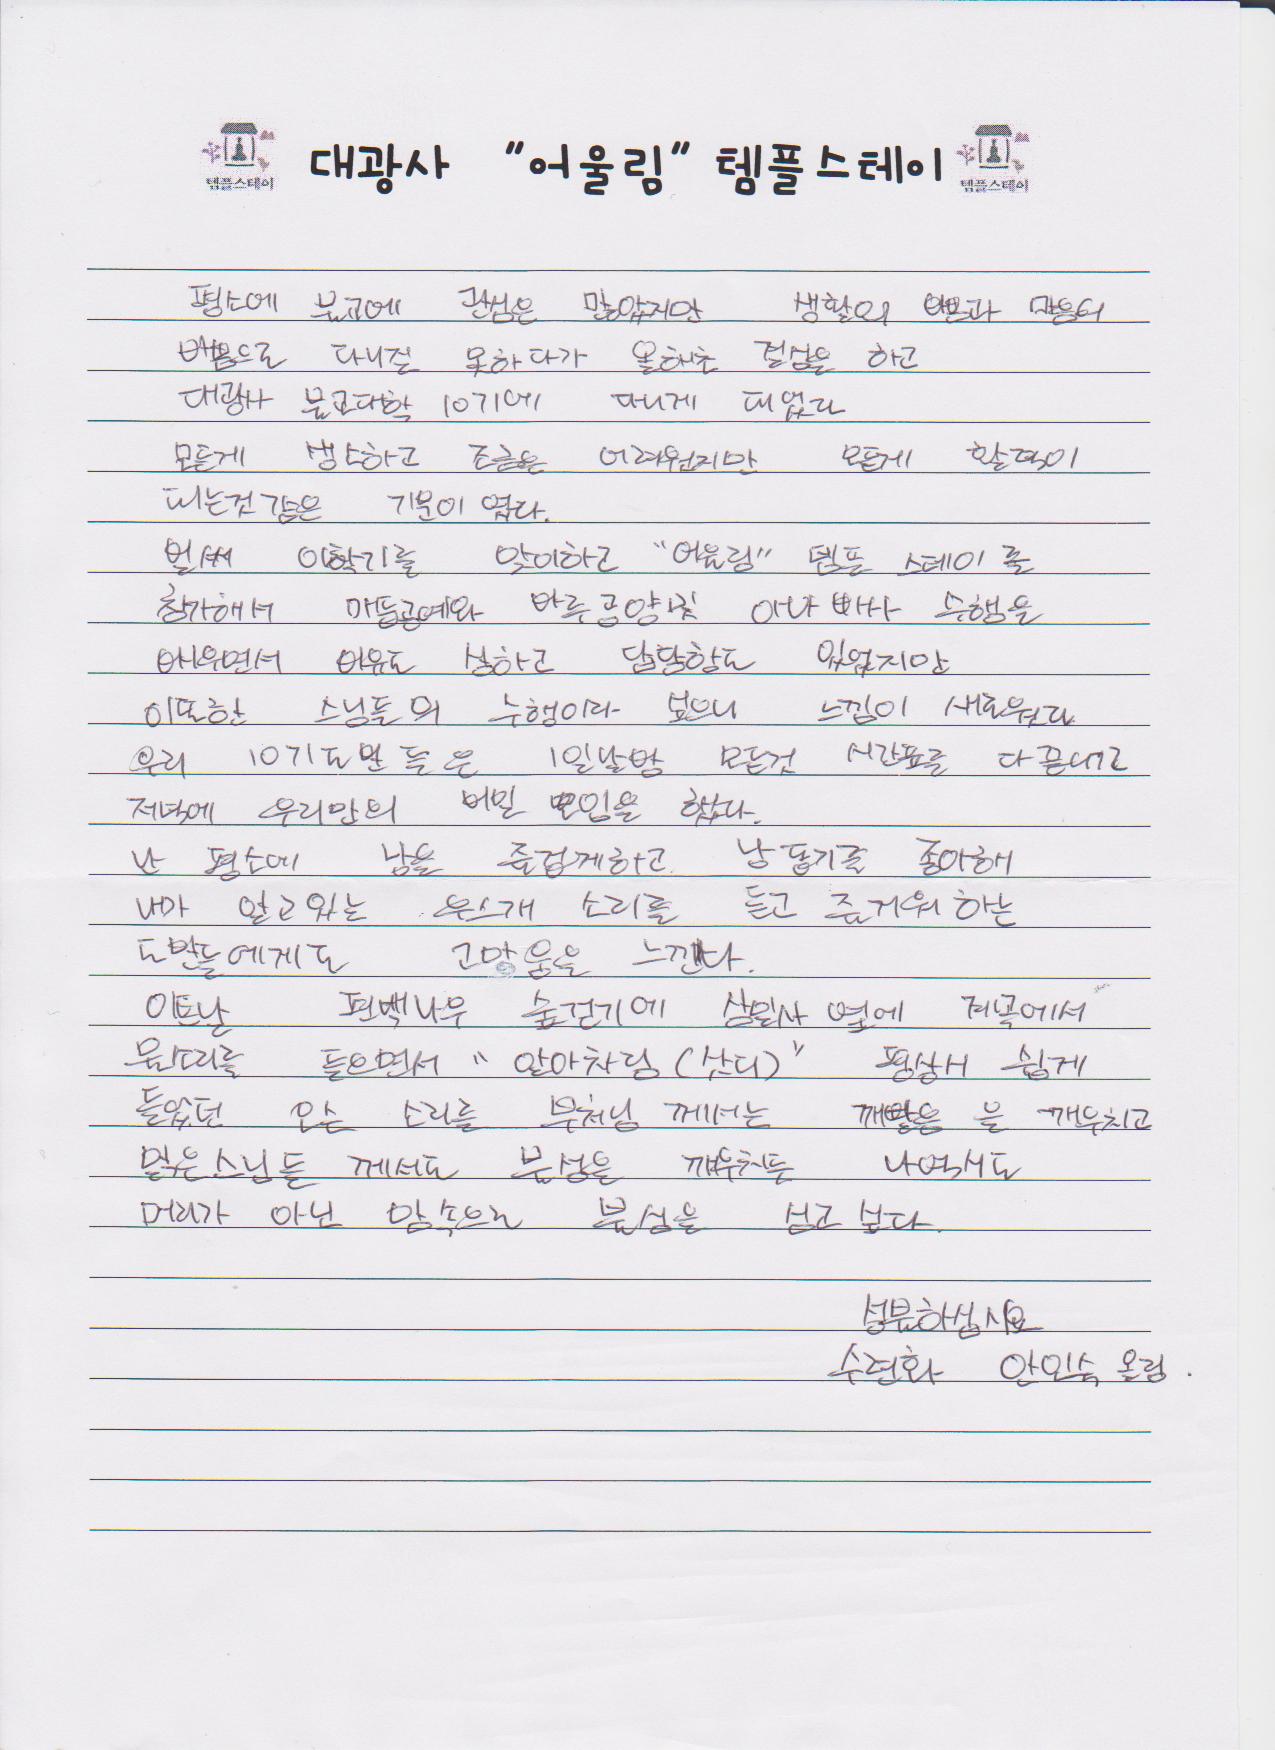 템플스테이 대광사 "어울림" 템플스테이 템플스테이
평소에 불교에 관심은 많았지만 생활의 마음의
다니질 못하다가 올해초 결심을 하고
대광사 불교대학 10기에 다니게 되었다
모든게 생소하고 조금은 어려웠지만 모든게 활력이
되는것 같은 기분이 였다.
벌써 이학기를 맞이하고 "어울림" 템플 스테이를
참가해서 매듭공예와 바루공양및 아나빠사 수행을
배우면서 어유도 심하고 답답함도 있었지만
이또한 스님들의 수행이라 보으니 느낌이 새로웠다
우리 10기도반들은 1일날밤 모든것 시간표를 다끝내고
저녁에 우리만의 비밀 모임을 했다.
난 평소에 남을 즐겁게하고 낭동기를 좋아해
내가 알고있는 우스개 소리를 듣고 즐거워하는
도반들에게도 고망움을 느낀다.
이튼날 편백나무 숲걷기에 삼밀사 옆에 계곡에서
물소리를 들으면서 "알아차림(산디)" 평상시 쉽게
들었던 않은 소리를 부처님께서는 깨달음을 깨우치고
많은스님들께서도 불성을 깨우쳐듯 나역시도
머리가 아닌 맘속으로 불성을 심고 싶다.
성불하십시요
수련화 안인숙 올림.